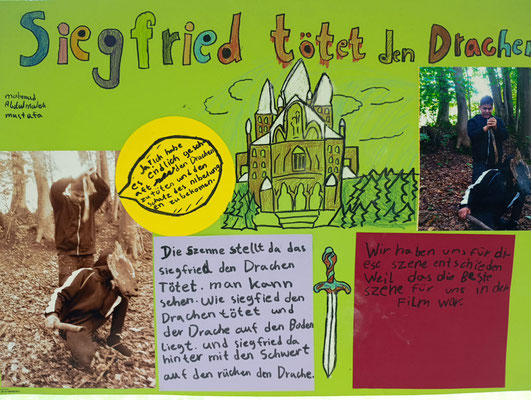 Siegfried tötet den Drachen
mahmud
Abdulmalek
mustafa
Ja ich habe
es endlich gesch
afft den Drachen
zu töten und den
schatz des nibelung
en zu bekommen.
Die szenne stellt da das
siegfried den Drachen
Tötet. man kann
sehen. Wie siegfied den
Drachen tötet und
der Drache auf den Boden
liegt. und siegfried da
hinter mit den Schwert
auf den rücken den Drache.
Wir haben uns für di
ese szene entschieden
Weil das die Beste
szene für uns in der
Film war.